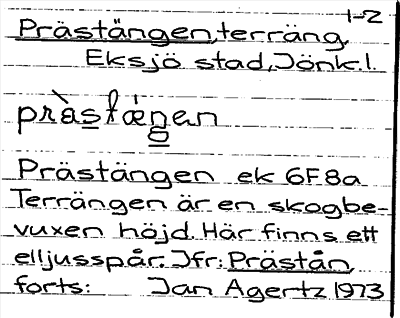 1-2
Prästängen, terräng,
Eksjö stad, Jönk. l.
prästängen
Prästängen ek 6F8a
Terrängen är en skogbe-
vuxen höjd. Här finns ett
elljusspår. Jfr: Prästån,
forts: Jan Agertz 1973